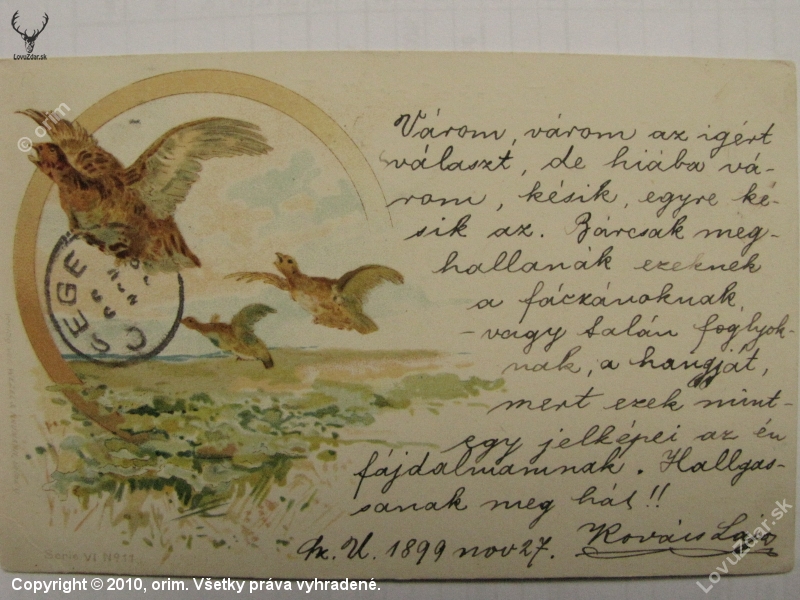 LovuZdar.sk
© orim
Várom, várom az igért
választ, de hiába vá-
rom, késik, egyre ké-
sik az. Bárcsak meg-
hallanák ezeknek
a fáczánoknak,
- vagy talán foglyok-
nak, a hangját,
mert ezek mint-
egy jelképei az én
fájdalmamnak. Hallgas-
sanak meg hát!!
1899 nov 27.
Kovács Lajos
SZEGE
Serie VI Nº 11
LovuZdar.sk
Copyright © 2010, orim. Všetky práva vyhradené.